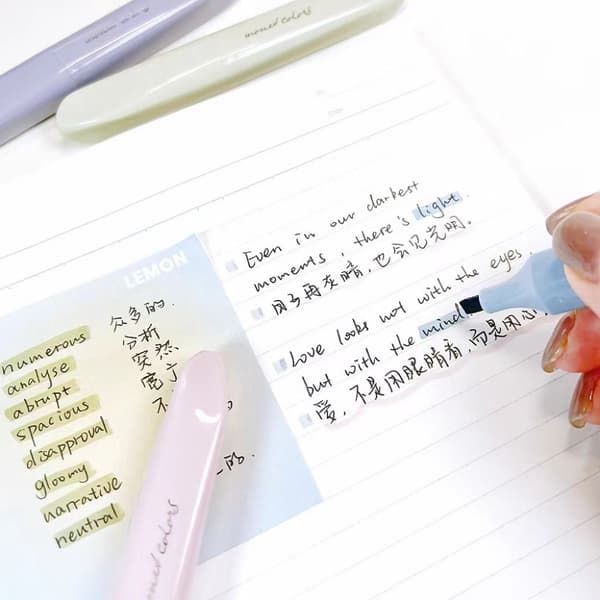 moned colors
LEMON
numerous 众多的.
analyse 分析
abrupt 突然
spacious 宽
disapproval 不
gloomy
narrative
neutral 的.
moned colors
Even in our darkest
moments, there's light.
日子再灰暗,也会见光明。
Love looks not with the eyes,
but with the mind.
爱,不是用眼睛看,而是用心,